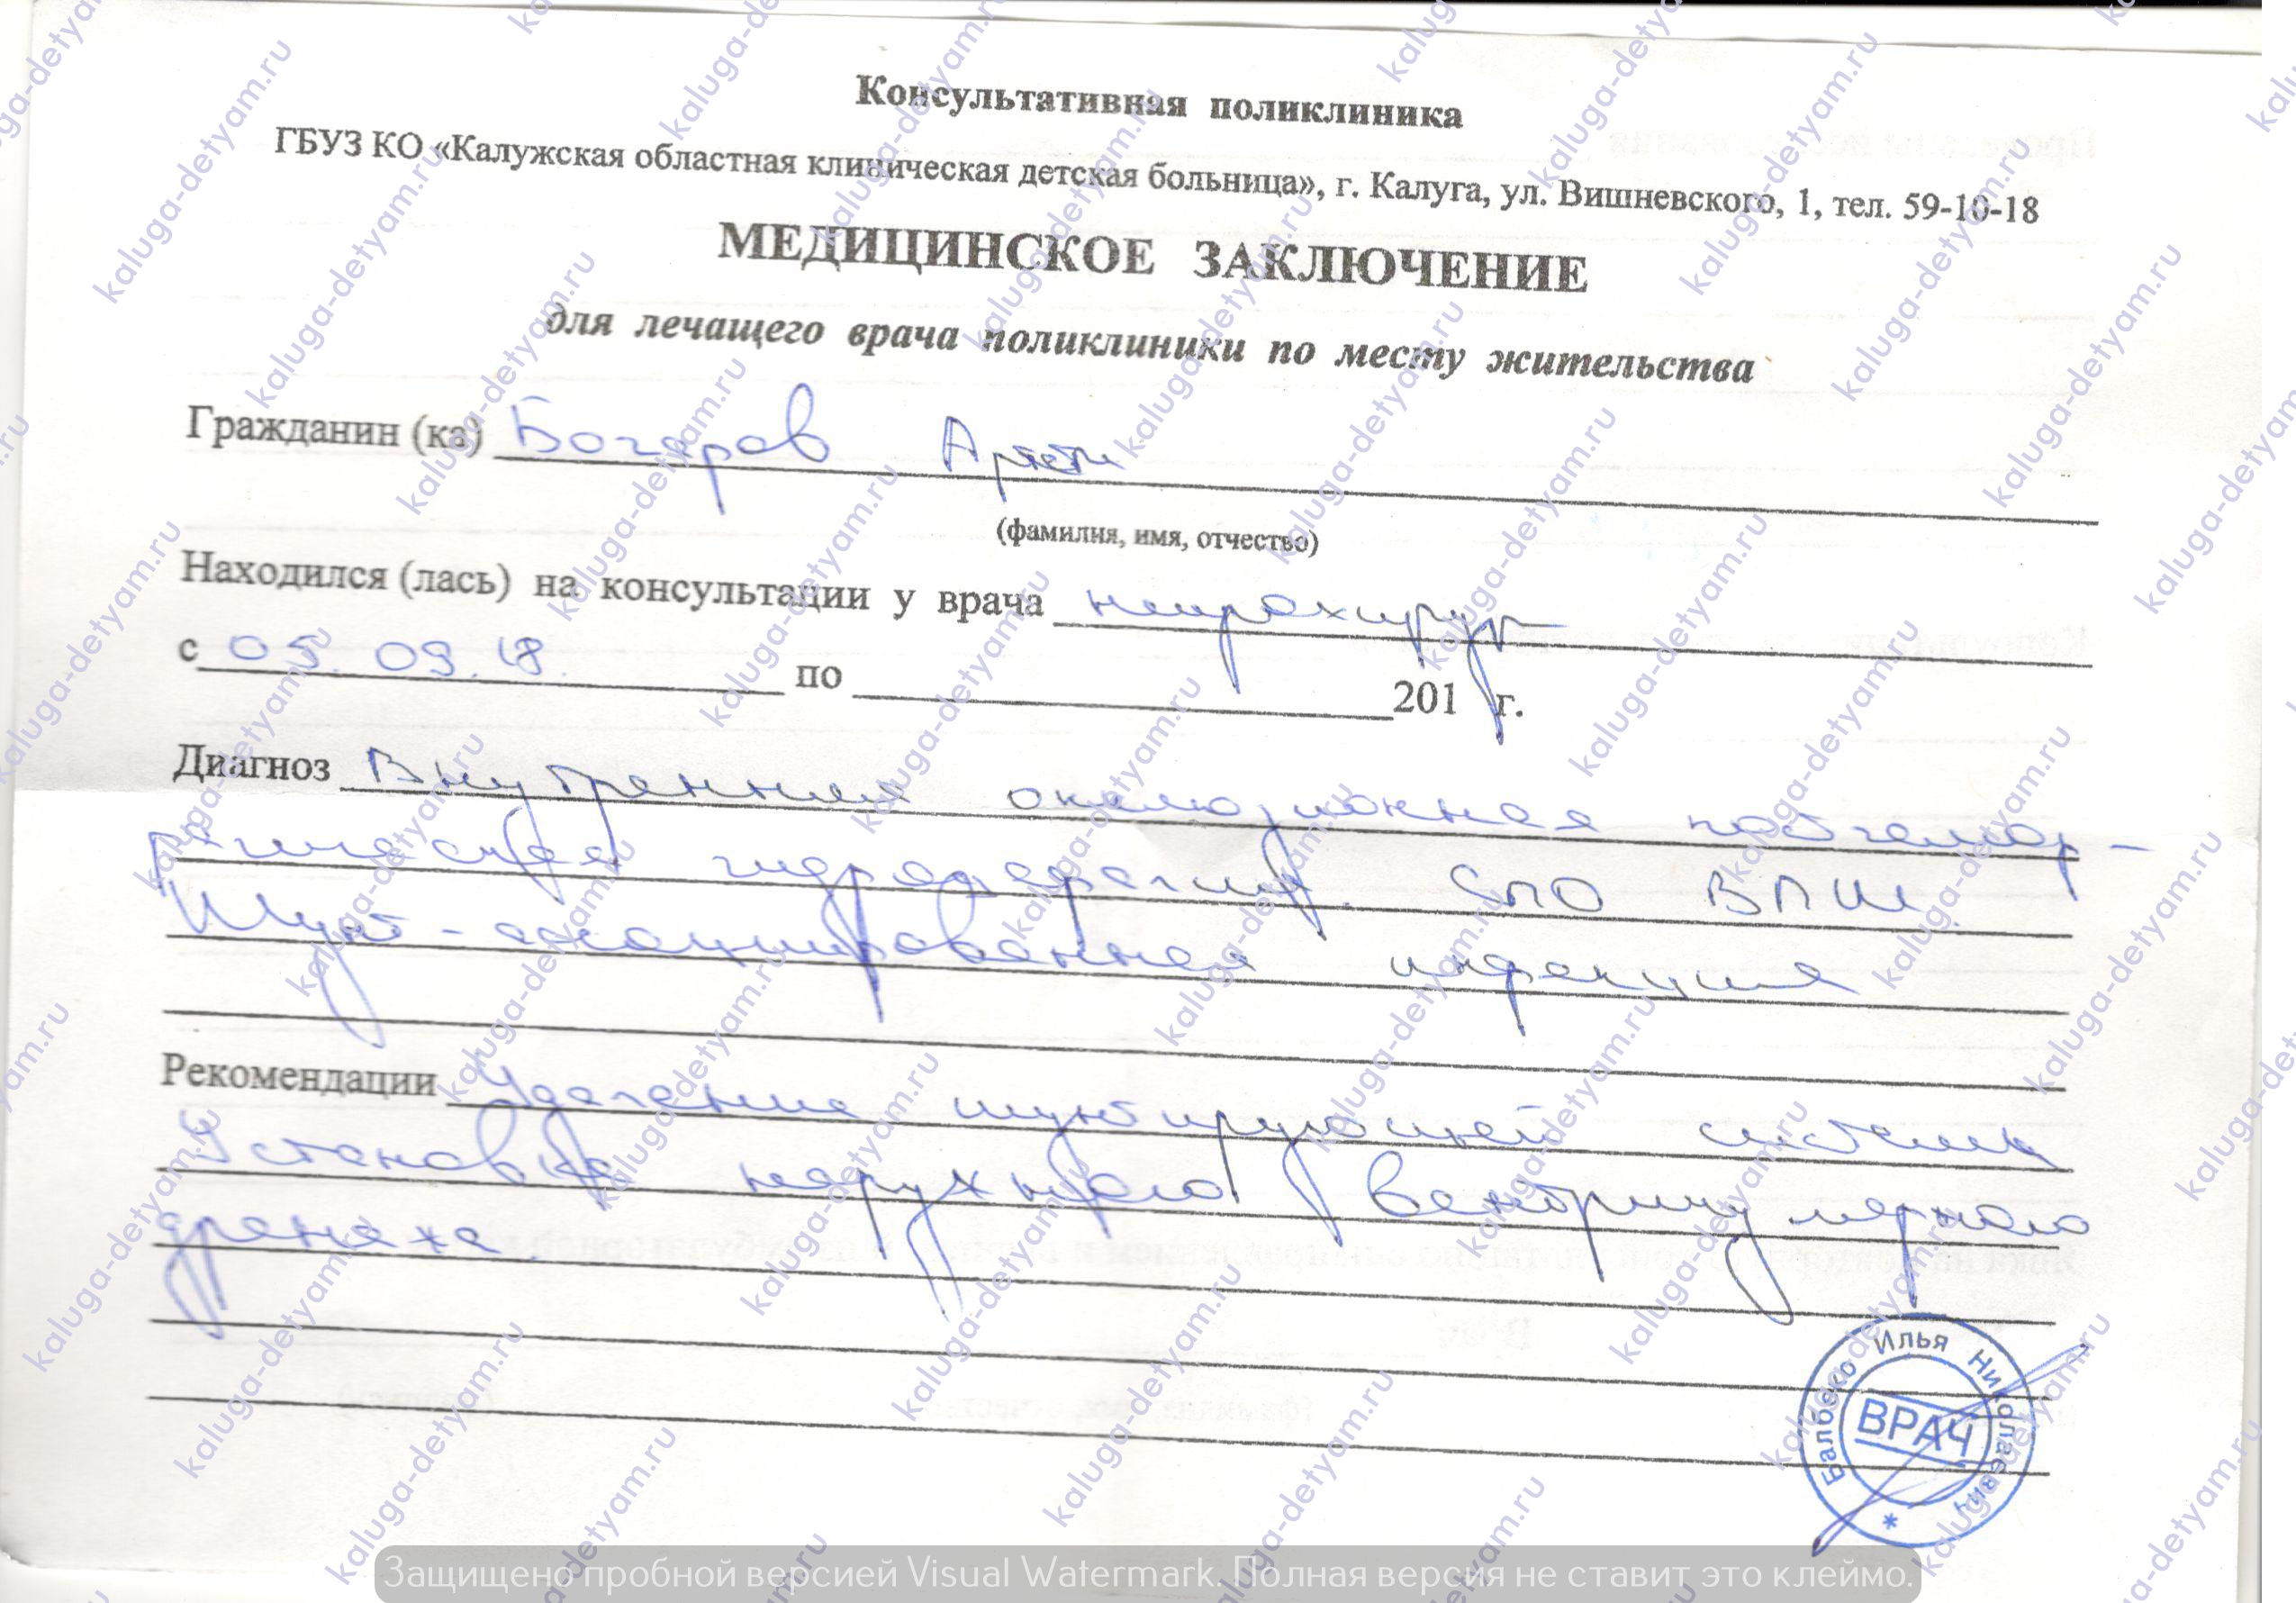 Консультативная поликлиника
ГБУЗ КО «Калужская областная клиническая детская больница», г. Калуга, ул. Вишневского, 1, тел. 59-10-18
МЕДИЦИНСКОЕ ЗАКЛЮЧЕНИЕ
для лечащего врача поликлиники по месту жительства
Гражданин (ка) Богеров
(фамилия, имя, отчество)
Находился (лась) на консультации у врача нейрохирург
с 05.09.18. по 201 г.
Диагноз Внутренняя окклюзионная постгемор-
рагическая гидроцефалия. СПО ВПШ.
Шунт-ассоциированная инфекция
Рекомендации Удаление шунтирующей системы
Установка наружного вентрикулярного
дренажа.
Балбеко Илья Николаевич
ВРАЧ
kaluga-detyam.ru
Защищено пробной версией Visual Watermark. Полная версия не ставит это клеймо.